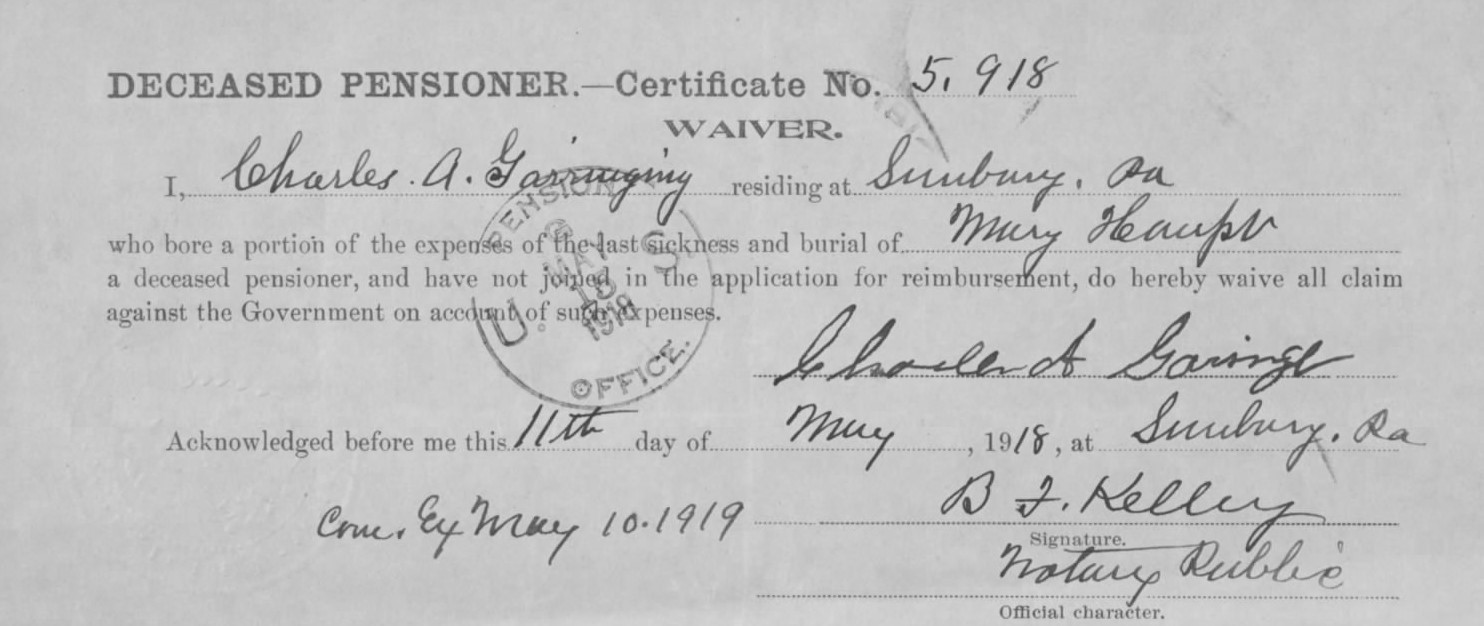 DECEASED PENSIONER.—Certificate No. 5,918
WAIVER.
I, Charles. A. residing at Sunbury, Pa
who bore a portion of the expenses of the last sickness and burial of Mary Haupt
a deceased pensioner, and have not joined in the application for reimbursement, do hereby waive all claim
against the Government on account of such expenses.
PENSION
U. S.
MAY
13
1918
OFFICE.
Charles A
Acknowledged before me this 11th day of May, 1918, at Sunbury, Pa
Com. Ex May 10. 1919
B F. Kelley
Signature.
Notary Public
Official character.